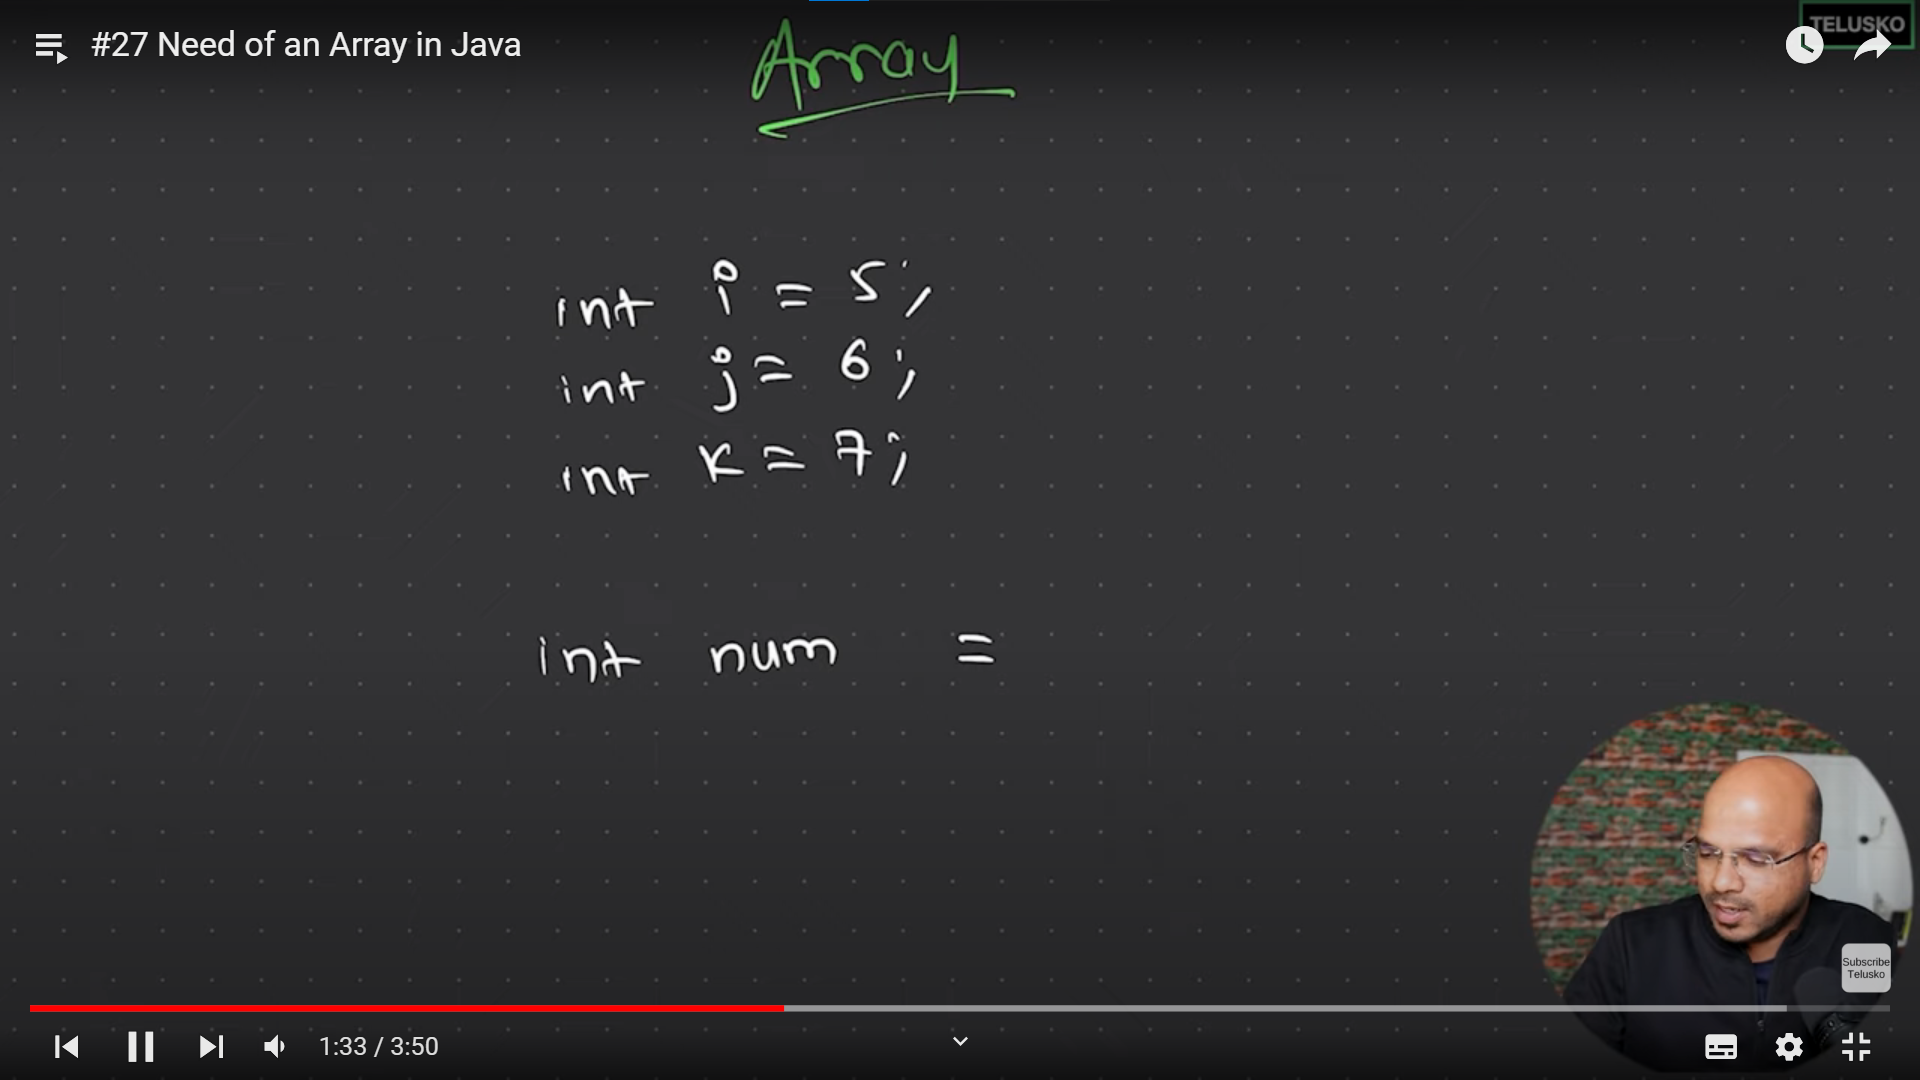 #27 Need of an Array in Java
TELUSKO
Array
int i = 5;
int j = 6;
int k = 7;
int num =
Subscribe
Telusko
1:33 / 3:50